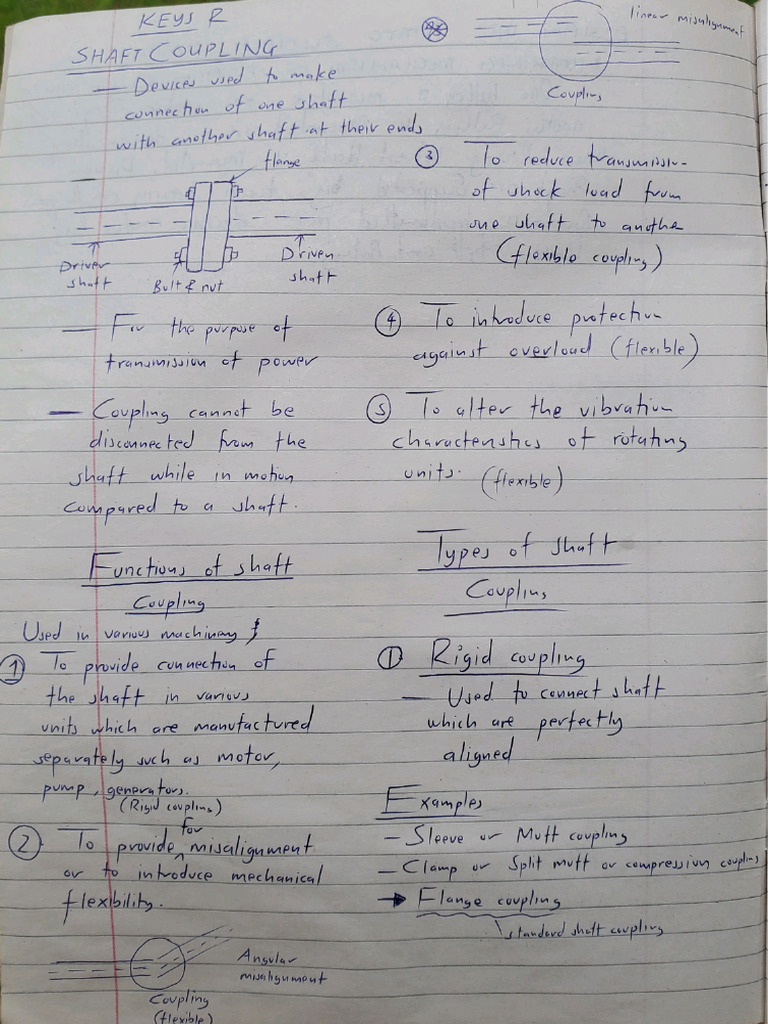 KEYS R
SHAFT COUPLING
— Devices used to make
connection of one shaft
with another shaft at their ends
flange
Driver
shaft
Bolt & nut
Driven
shaft
— For the purpose of
transmission of power
— Coupling cannot be
disconnected from the
shaft while in motion
compared to a shaft.
Functions of shaft
Coupling
Used in various machinery
① To provide connection of
the shaft in various
units which are manufactured
separately such as motor,
pump, generators.
(Rigid coupling)
② To provide for misalignment
or to introduce mechanical
flexibility.
Angular
misalignment
Coupling
(flexible)
linear misalignment
Coupling
③ To reduce transmission
of shock load from
one shaft to another
(flexible coupling)
④ To introduce protection
against overload (flexible)
⑤ To alter the vibration
characteristics of rotating
units. (flexible)
Types of shaft
Coupling
① Rigid coupling
— Used to connect shaft
which are perfectly
aligned
Examples
— Sleeve or Muff coupling
— Clamp or Split muff or compression coupling
→ Flange coupling
standard shaft coupling